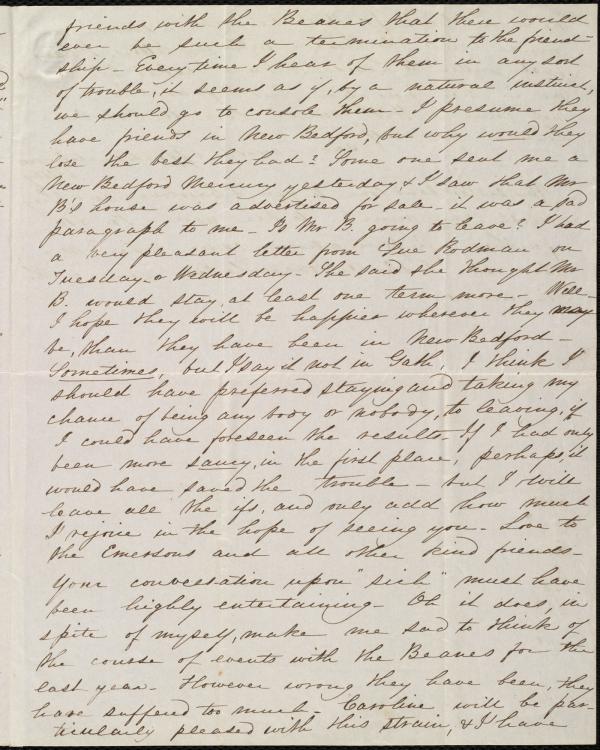 friends with the Beanes that there would
ever be such a termination to the friend-
ship - Every time I hear of them in any sort
of trouble, it seems as if, by a natural instinct,
we should go to console them - I presume they
have friends in New Bedford, but why would they
lose the best they had? Some one sent me a
New Bedford Mercury yesterday & I saw that Mr
B's house was advertised for sale - it was a sad
paragraph to me - Is Mr B. going to leave? I had
a very pleasant letter from Sue Rodman on
Tuesday or Wednesday - She said she thought Mr
B. would stay at least one term more - Well -
I hope they will be happier wherever they may
be, than they have been in New Bedford -
Sometimes, but I say it not in Gath, I think I
should have preferred staying and taking my
chance of being any body or nobody, to leaving, if
I could have foreseen the results - If I had only
been more saucy, in the first place, perhaps, it
would have saved the trouble - but I will
leave all the ifs, and only add how much
I rejoice in the hope of seeing you - Love to
the Emersons and all other kind friends -
Your conversation upon "sich" must have
been highly entertaining - Oh it does, in
spite of myself, make me sad to think of
the course of events with the Beanes for the
last year - However wrong they have been, they
have suffered too much - Caroline will be par-
ticularly pleased with this strain, & I have